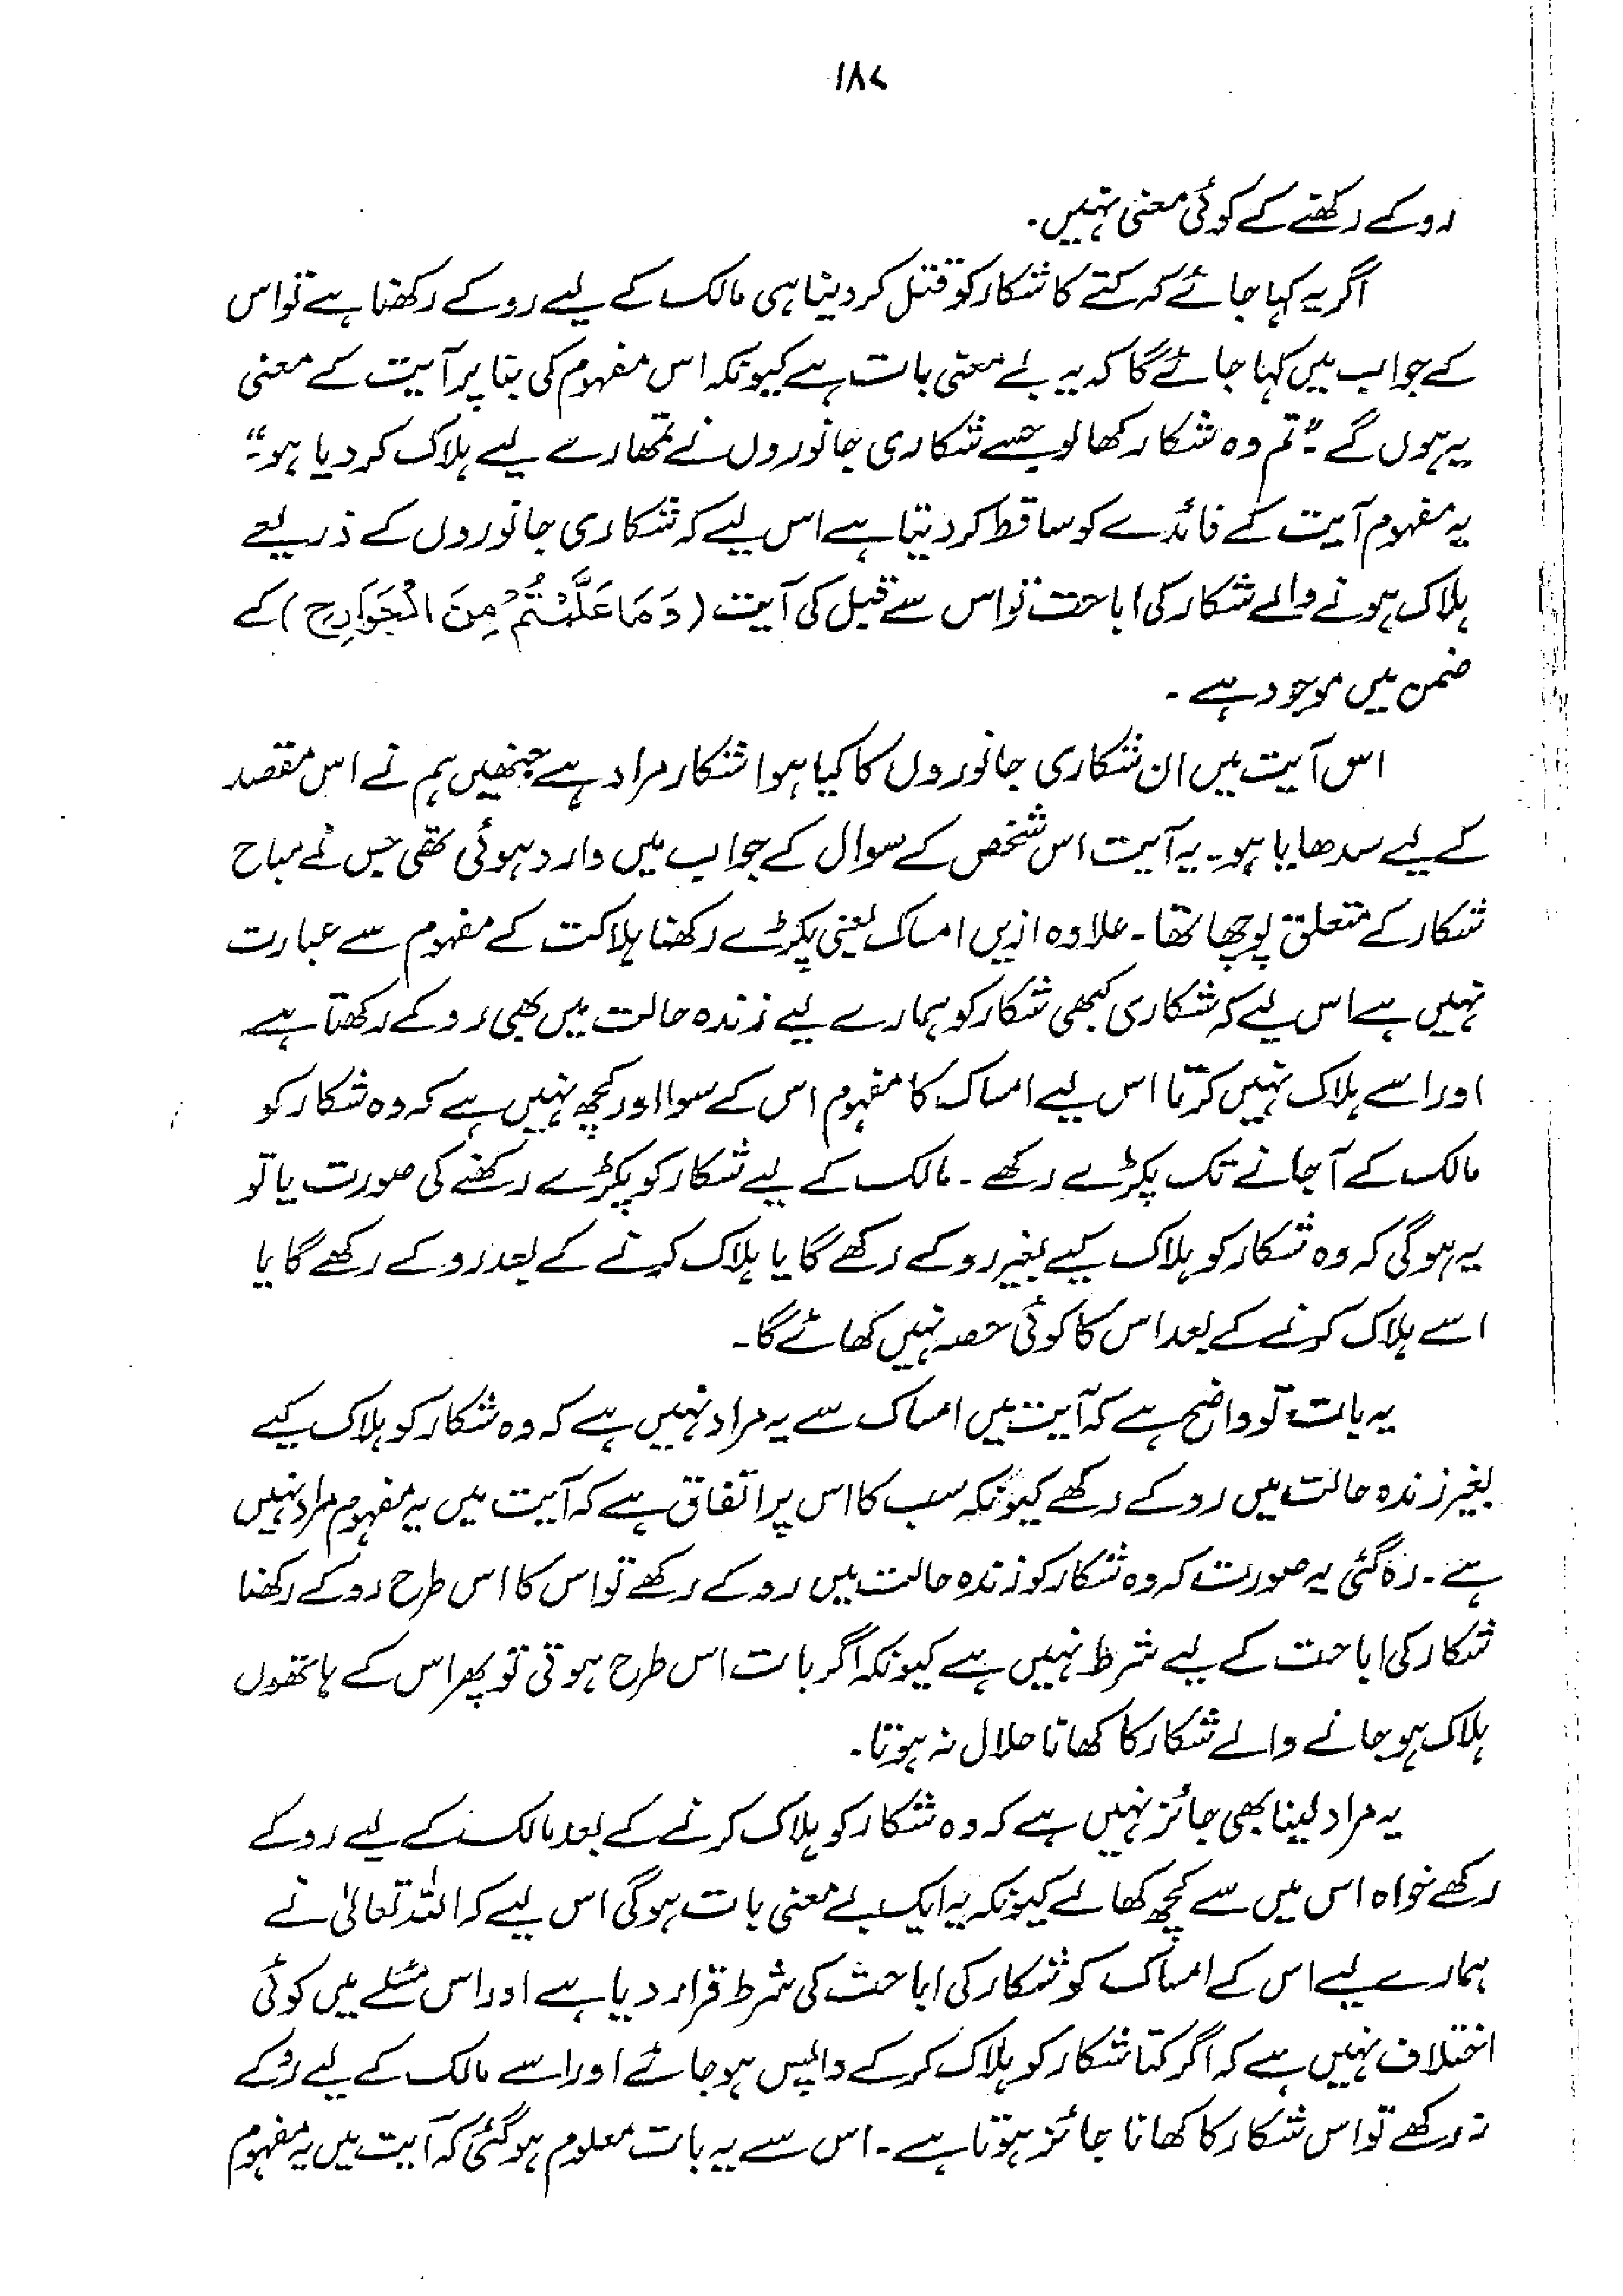 ۱۸۷
روکے رکھنے کے کوئی معنی نہیں۔
اگر یہ کہا جائے کہ کتے کا شکار کو قتل کر دینا ہی مالک کے لیے روکے رکھنا ہے تو اس
کے جواب میں کہا جائے گا کہ یہ بے معنی بات ہے کیونکہ اس مفہوم کی بنا پر آیت کے معنی
یہ ہوں گے "تم وہ شکار کھا لو جسے شکاری جانوروں نے تمھارے لیے ہلاک کر دیا ہو"
یہ مفہوم آیت کے فائدے کو ساقط کر دیتا ہے اس لیے کہ شکاری جانوروں کے ذریعے
ہلاک ہونے والے شکار کی اباحت تو اس سے قبل کی آیت (وَمَا عَلَّمْتُمْ مِنَ الْجَوَارِحِ) کے
ضمن میں موجود ہے۔
اس آیت میں ان شکاری جانوروں کا کیا ہوا شکار مراد ہے جنھیں ہم نے اس مقصد
کے لیے سدھایا ہو۔ یہ آیت اس شخص کے سوال کے جواب میں وارد ہوئی تھی جس نے مباح
شکار کے متعلق پوچھا تھا۔ علاوہ ازیں امساک یعنی پکڑے رکھنا ہلاکت کے مفہوم سے عبارت
نہیں ہے اس لیے کہ شکاری کبھی شکار کو ہمارے لیے زندہ حالت میں بھی روکے رکھتا ہے
اور اسے ہلاک نہیں کرتا اس لیے امساک کا مفہوم اس کے سوا اور کچھ نہیں ہے کہ وہ شکار کو
مالک کے آ جانے تک پکڑے رکھے۔ مالک کے لیے شکار کو پکڑے رکھنے کی صورت یا تو
یہ ہوگی کہ وہ شکار کو ہلاک کیے بغیر روکے رکھے گا یا ہلاک کرنے کے بعد روکے رکھے گا یا
اسے ہلاک کرنے کے بعد اس کا کوئی حصہ نہیں کھائے گا۔
یہ بات تو واضح ہے کہ آیت میں امساک سے یہ مراد نہیں ہے کہ وہ شکار کو ہلاک کیے
بغیر زندہ حالت میں روکے رکھے کیونکہ سب کا اس پر اتفاق ہے کہ آیت میں یہ مفہوم مراد نہیں
ہے۔ رہ گئی یہ صورت کہ وہ شکار کو زندہ حالت میں روکے رکھے تو اس کا اس طرح روکے رکھنا
شکار کی اباحت کے لیے شرط نہیں ہے کیونکہ اگر بات اس طرح ہوتی تو پھر اس کے ہاتھوں
ہلاک ہو جانے والے شکار کا کھانا حلال نہ ہوتا۔
یہ مراد لینا بھی جائز نہیں ہے کہ وہ شکار کو ہلاک کرنے کے بعد مالک کے لیے روکے
رکھے خواہ اس میں سے کچھ کھالے کیونکہ یہ ایک بے معنی بات ہوگی اس لیے کہ اللہ تعالیٰ نے
ہمارے لیے اس کے امساک کو شکار کی اباحت کی شرط قرار دیا ہے اور اس مسئلے میں کوئی
اختلاف نہیں ہے کہ اگر کتا شکار کو ہلاک کر کے واپس ہو جائے اور اسے مالک کے لیے روکے
نہ رکھے تو اس شکار کا کھانا جائز ہوتا ہے۔ اس سے یہ بات معلوم ہو گئی کہ آیت میں یہ مفہوم